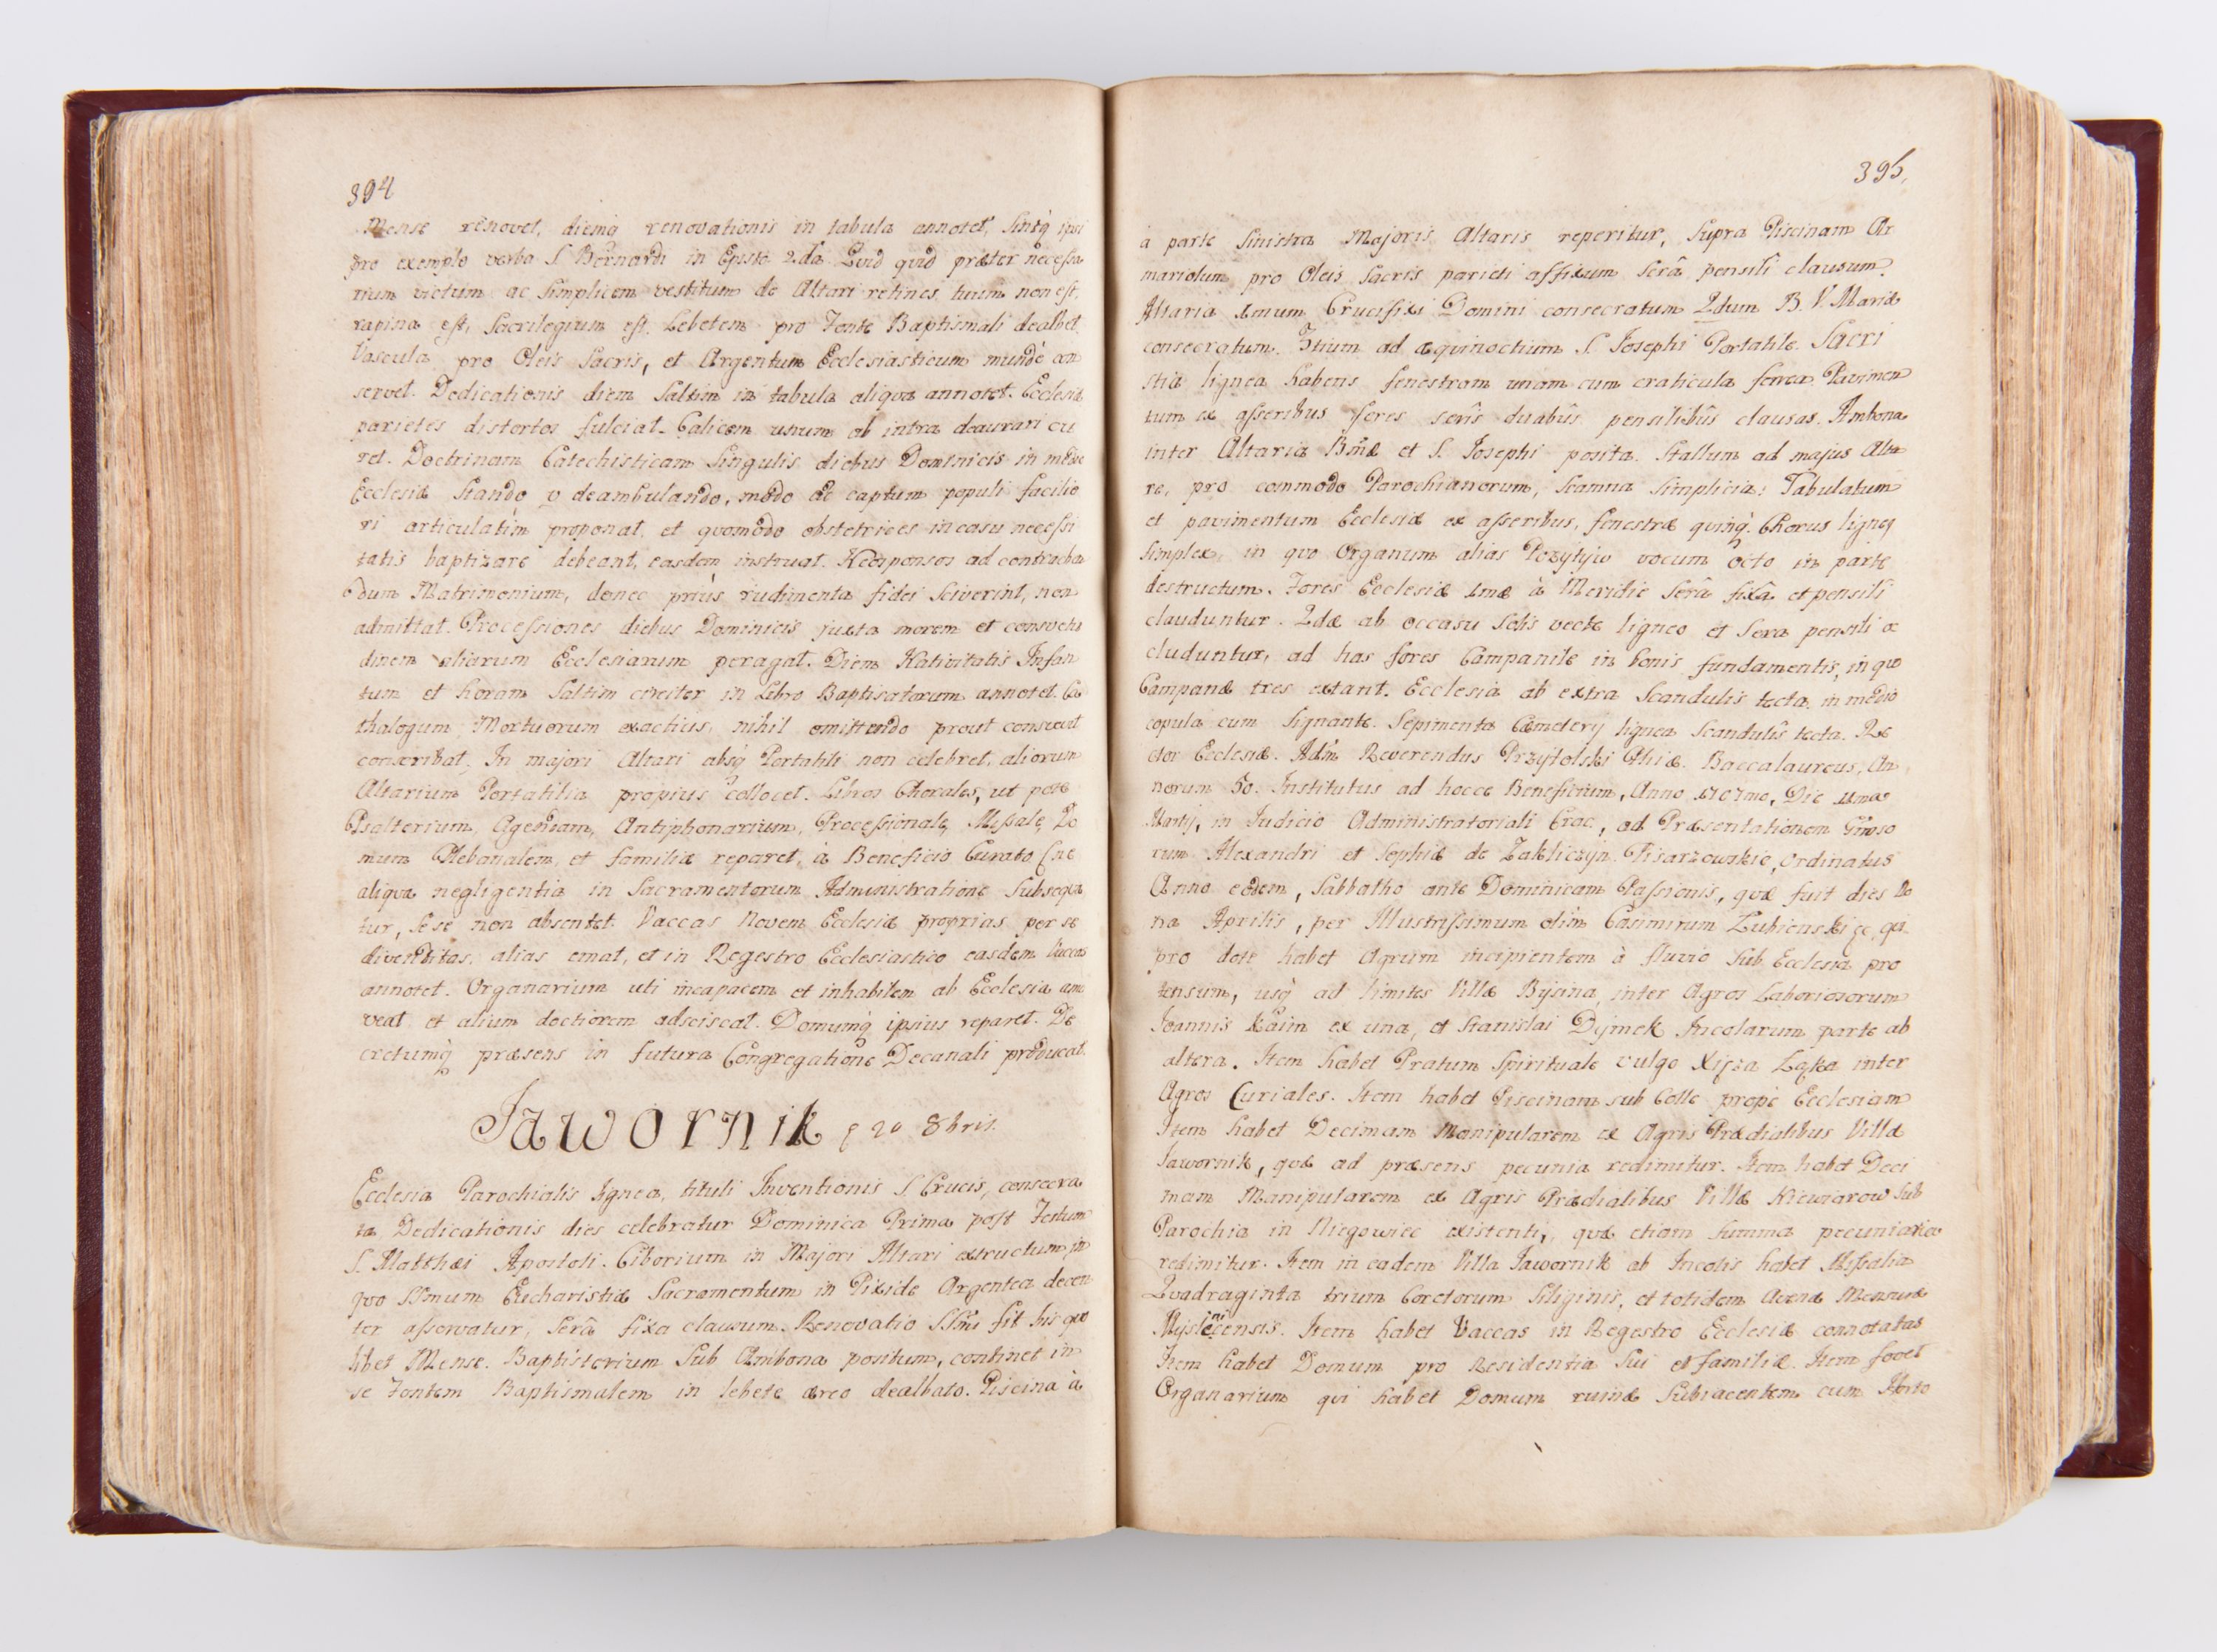 394
Mense renovet, diemq renovationis in tabula annotet, Sintq ipsi
pro exemplo verba S. Bernardi in Epist: 2da Quid quid præter necessa
rium victum ac Simplicem vestitum de Altari retines tuum non est,
rapina est, Sacrilegium est. Lebetem pro Fonte Baptismali dealbet.
Vascula pro Oleis Sacris, et Argentum Ecclesiasticum mundè con
servet. Dedicationis diem Saltim in tabula aliqua annotet. Ecclesiæ
parietes distortos fulciat. Calicem unum ab intra deaurari cu
ret. Doctrinam Catechisticam Singulis diebus Dominicis in medio
Ecclesiæ Stando v deambulando, modo ad captum populi facilio
ri articulatim proponat, et quomodo obstetrices in casu necessi
tatis baptizare debeant, easdem instruat. Neosponsos ad contrahen
dum Matrimonium, donec priùs rudimenta fidei Sciverint, non
admittat. Processiones diebus Dominicis juxta morem et consvetu
dinem aliarum Ecclesiarum peragat. Diem Nativitatis Infan
tum et horam Saltim circiter in Libro Baptisatorum annotet. Ca
thalogum Mortuorum exactius, nihil omittendo prout consvevit
conscribat. In majori Altari absq Portatili non celebret, aliorum
Altarium Portatilia propius collocet. Libros Chorales, ut pote
Psalterium, Agendam, Antiphonarium, Processionale, Missale, Do
mum Plebanalem, et familiæ reparet, à Beneficio Curato (ne
aliqua negligentia in Sacramentorum Administratione Subsequa
tur, Se se non absentet. Vaccas Novem Ecclesiæ proprias per se
divenditas, alias emat, et in Regestro Ecclesiastico easdem Vaccas
annotet. Organarium uti incapacem et inhabilem ab Ecclesia amo
veat et alium doctiorem adsciscat. Domumq ipsius reparet. De
cretumq præsens in futura Congregatione Decanali producat.
Jawornik 20 8bris.
Ecclesia Parochialis lignea, tituli Inventionis S. Crucis, consecra
ta Dedicationis dies celebratur Dominica Prima post Festum
S. Matthæi Apostoli. Ciborium in Majori Altari extructum in
quo SSmum Eucharistiæ Sacramentum in Pixide Argentea decen
ter asservatur, Serâ fixa clausum. Renovatio SSmi fit bis quo
libet Mense. Baptisterium Sub Ambona positum, continet in
se Fontem Baptismalem in lebete æreo dealbato. Piscina à
395.
a parte Sinistra Majoris Altaris reperitur, Supra Piscinam Ar
mariolum pro Oleis Sacris parieti affixum Serâ pensili clausum.
Altaria 1mum Crucifixi Domini consecratum 2dum B. V. Mariæ
consecratum. 3tium ad æquinoctium S. Josephi Portatile. Sacri
stia lignea habens fenestram unam cum craticula ferrea Pavimen
tum ex asseribus fores seris duabûs pensilibûs clausas. Ambona
inter Altaria Bmæ et S. Josephi posita. Stallum ad majus Alta
re, pro commodo Parochianorum, Scamna Simplicia: Tabulatum
et pavimentum Ecclesiæ ex asseribus, fenestræ quinq. Chorus ligneq
Simplex in quo Organum alias Pozytyw vocum octo in parte
destructum. Fores Ecclesiæ 1mæ à Meridie Serâ fixâ et pensili
clauduntur. 2dæ ab occasu Solis vecte ligneo et Sera pensili o
cluduntur, ad has fores Campanile in bonis fundamentis, in quo
Campanæ tres extant. Ecclesia ab extra Scandulis tecta in medio
copula cum Signante. Sepimenta Cæmeterij lignea Scandulis tecta. Re
ctor Ecclesiæ. Adm Reverendus Przytolski Phiæ. Baccalaureus, An
norum 50. Institutus ad hocce Beneficium, Anno 1707mo, Die 11ma
Martij, in Judicio Administratoriali Crac, ad Præsentationem Gnroso
rum Alexandri et Sophiæ de Zakliczyn Pisarzowskie, Ordinatus
Anno eodem, Sabbatho ante Dominicam Passionis, quæ fuit dies No
na Aprilis, per Illustrissimum olim Casimirum Łubienski
pro dote habet Agrum incipientem à fluvio Sub Ecclesia pro
tensum, usq ad limites Villæ Bysina, inter Agros Laboriosorum
Joannis Kaim ex una, et Stanislai Dymek Incolarum parte ab
altera. Item habet Pratum Spirituale vulgo Xięza Łąka inter
Agros Curiales. Item habet Piscinam sub Colle propè Ecclesiam
Item habet Decimam Manipularem ex Agris Prædialibus Villæ
Jawornik, quæ ad præsens pecunia redimitur. Item habet Deci
mam Manipularem ex Agris Prædialibus Villæ Kiewiarow Sub
Parochia in Niegowiec existenti, quæ etiam Summa pecuniaria
redimitur. Item in eadem Villa Jawornik ab Incolis habet Missalia
Quadraginta trium Coretorum Siliginis, et totidem Avenæ Mensuræ
Item habet Vaccas in Regestro Ecclesiæ connotatas
Item habet Domum pro Residentia Sui et familiæ. Item fovet
Organarium qui habet Domum ruinæ Subiacentem cum Horto